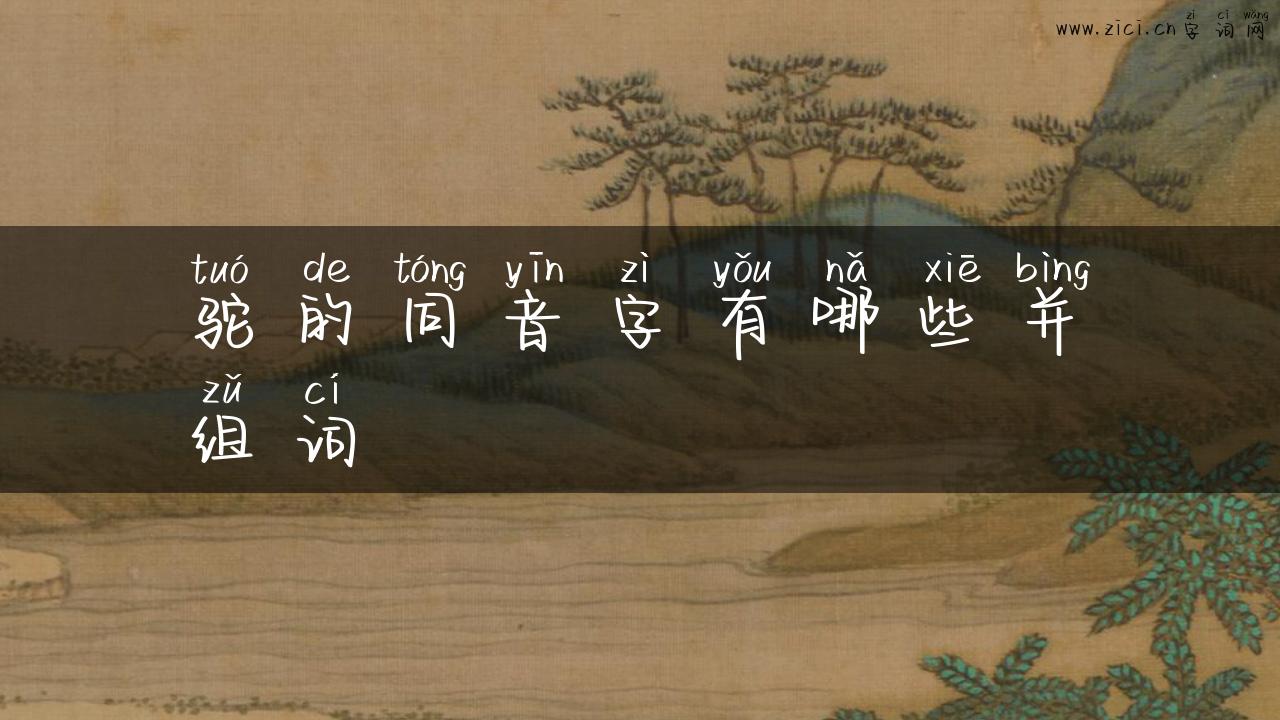 zì cí wǎng
www.zici.cn 字词网
tuó de tóng yīn zì yǒu nǎ xiē bìng
驼的同音字有哪些并
zǔ cí
组词